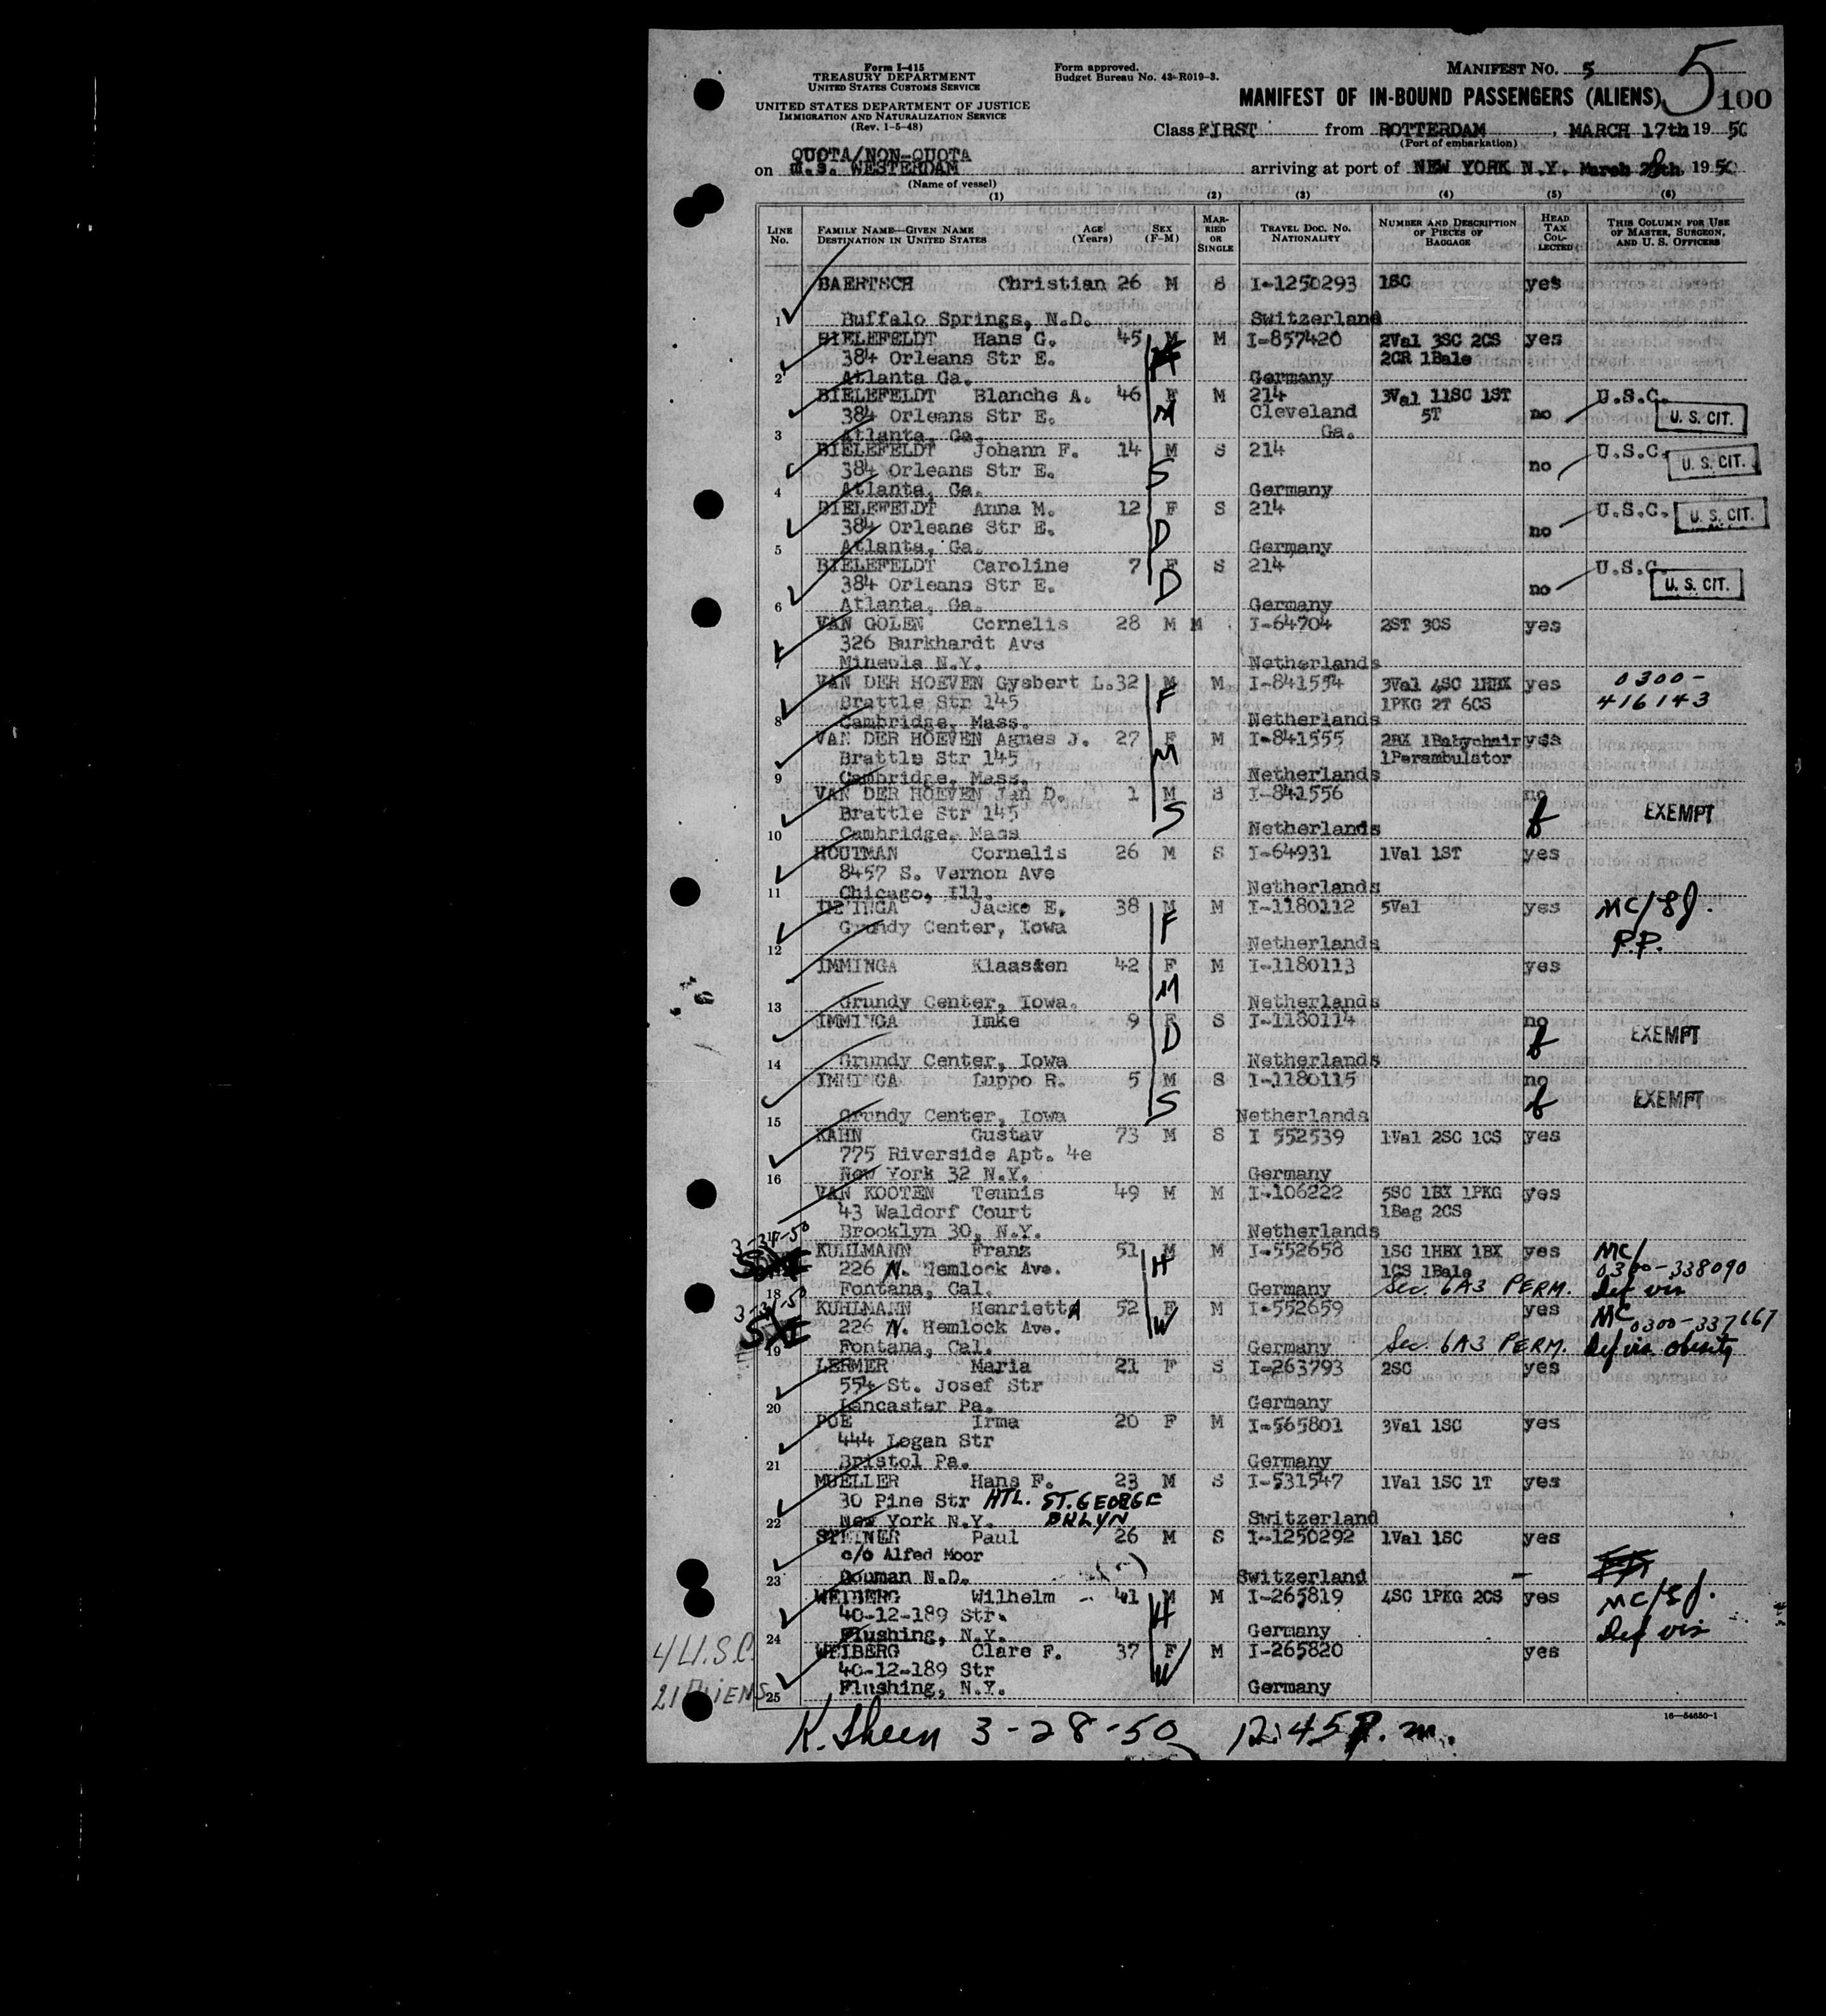 Form I-415
TREASURY DEPARTMENT
UNITED STATES CUSTOMS SERVICE
UNITED STATES DEPARTMENT OF JUSTICE
IMMIGRATION AND NATURALIZATION SERVICE
(Rev. 1-5-48)
Form approved.
Budget Bureau No. 43-R019-3.
MANIFEST No. 5
5
MANIFEST OF IN-BOUND PASSENGERS (ALIENS) 100
Class FIRST from ROTTERDAM, MARCH 17th 19 50
(Port of embarkation)
QUOTA/NON-QUOTA
on m.s. WESTERDAM arriving at port of NEW YORK N.Y. March 28th, 19 50
(Name of vessel)
(1) (2) (3) (4) (5) (6)
LINE No. FAMILY NAME—GIVEN NAME DESTINATION IN UNITED STATES AGE (Years) SEX (F-M) MARRIED OR SINGLE TRAVEL DOC. NO. NATIONALITY NUMBER AND DESCRIPTION OF PIECES OF BAGGAGE HEAD TAX COLLECTED THIS COLUMN FOR USE OF MASTER, SURGEON, AND U. S. OFFICERS
BAERTSCH Christian 26 M S I-1250293 1SC yes
1 Buffalo Springs, N.D. Switzerland
BIELEFELDT Hans G. 45 M M I-857420 2Val 3SC 2CS yes
384 Orleans Str E. H 2CR 1Bale
2 Atlanta Ga. Germany
BIELEFELDT Blanche A. 46 F M 214 3Val 11SC 1ST U.S.C.
384 Orleans Str E. M Cleveland 5T no U. S. CIT.
3 Atlanta, Ga. Ga.
BIELEFELDT Johann F. 14 M S 214 U.S.C.
384 Orleans Str E. S no U. S. CIT.
4 Atlanta, Ga. Germany
BIELEFELDT Anna M. 12 F S 214 U.S.C. U. S. CIT.
384 Orleans Str E. D no
5 Atlanta, Ga. Germany
BIELEFELDT Caroline 7 F S 214 U.S.C.
384 Orleans Str E. D no U. S. CIT.
6 Atlanta, Ga. Germany
VAN GOLEN Cornelis 28 M M I-64704 2ST 3CS yes
326 Burkhardt Ave
7 Mineola N.Y. Netherlands
VAN DER HOEVEN Gysbert L. 32 M M I-841554 3Val 4SC 1HBX yes 0300-
Brattle Str 145 F 1PKG 2T 6CS 416143
8 Cambridge, Mass. Netherlands
VAN DER HOEVEN Agnes J. 27 F M I-841555 2BX 1Babychair yes
Brattle Str 145 M 1Perambulator
9 Cambridge, Mass. Netherlands
VAN DER HOEVEN Jan D. 1 M S I-841556 no
Brattle Str 145 S EXEMPT
10 Cambridge, Mass Netherlands
HOUTMAN Cornelis 26 M S I-64931 1Val 1ST yes
8457 S. Vernon Ave
11 Chicago, Ill. Netherlands
Jacko E. 38 M M I-1180112 5Val yes MC/
Grundy Center, Iowa F P.P.
12 Netherlands
IMMINGA Klaasien 42 F M I-1180113 yes
M
13 Grundy Center, Iowa. Netherlands
IMMINGA Imke 9 F S I-1180114 no
D EXEMPT
14 Grundy Center, Iowa Netherlands
IMMINGA Luppo R. 5 M S I-1180115 no
S EXEMPT
15 Grundy Center, Iowa Netherlands
KAHN Gustav 73 M S I 552539 1Val 2SC 1CS yes
775 Riverside Apt. 4e
16 New York 32 N.Y. Germany
VAN KOOTEN Teunis 49 M M I-106222 5SC 1BX 1PKG yes
43 Waldorf Court 1Bag 2CS
17 Brooklyn 30, N.Y. Netherlands
KUHLMANN Franz 51 M M I-552658 1SC 1HBX 1BX yes MC/
226 N. Hemlock Ave. H 1CS 1Bale 0300-338090
18 Fontana, Cal. Germany Sec. 6A3 PERM. Def vis
KUHLMANN Henrietta 52 F M I-552659 yes MC 0300-337667
226 N. Hemlock Ave. W
19 Fontana, Cal. Germany Sec. 6A3 PERM. Def vis. obesity
LERMER Maria 21 F S I-263793 2SC yes
554 St. Josef Str
20 Lancaster Pa. Germany
POE Irma 20 F M I-565801 3Val 1SC yes
444 Logan Str
21 Bristol Pa. Germany
MUELLER Hans F. 23 M S I-531547 1Val 1SC 1T yes
30 Pine Str HTL. ST. GEORGE
22 New York N.Y. BKLYN Switzerland
STEINER Paul 26 M S I-1250292 1Val 1SC yes
c/o Alfed Moor
23 Douman N.D. Switzerland
WEIBERG Wilhelm 41 M M I-265819 4SC 1PKG 2CS yes MC/
40-12-189 Str. H
24 Flushing, N.Y. Germany Def vis
WEIBERG Clare F. 37 F M I-265820 yes
40-12-189 Str W
25 Flushing, N.Y. Germany
4 U.S.C.
21 ALIENS
K. Sheen 3-28-50 12:45 P.m.
16—54650-1